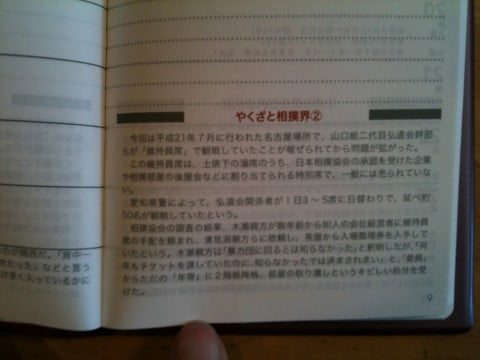 やくざと相撲界②
今回は平成21年7月に行われた名古屋場所で、山口組二代目弘道会幹部
らが「維持員席」で観戦していたことが報ぜられてから問題が拡がった。
この維持員席は、土俵下の溜席のうち、日本相撲協会の承認を受けた企業
や相撲部屋の後援会などに割り当てられる特別席で、一般には売られていな
い。
愛知県警によって、弘道会関係者が1日3～5席に日替わりで、延べ約
50名が観戦していたという。
相撲協会の調査の結果、木瀬親方が数年前から知人の会社経営者に維持員
席の手配を頼まれ、清見潟親方らに依頼し、茶屋から入場整理券を入手して
いたという。木瀬親方は「暴力団に回るとは知らなかった」と釈明したが、「何
年もチケットを渡していたのに、知らなかったでは済まされまい」と、「委員」
からただの「年寄」に2階級降格、部屋の取り潰しというキビしい処分を受
けた。
9
のが関西だ。「背中一
せたった」などと言う
け多く入っているかに
20
21